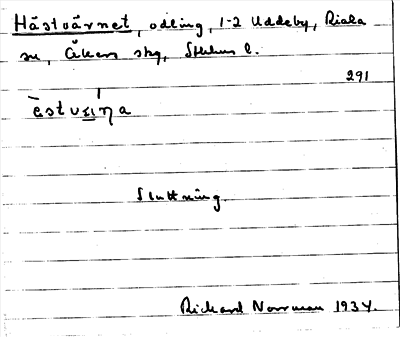 Hästvärnet, odling, 1-2 Uddeby, Riala
sn, Åkers skg, Sthlms l.
291
Sluttning.
Richard Norrman 1934.